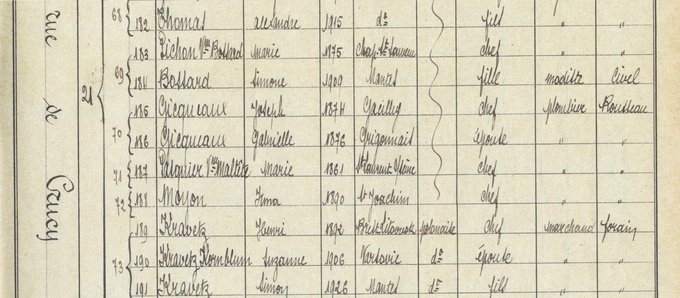 rue de Crucy
22
68 182 Thomas alexandre 1915 do fils " "
183 Pichon Vve Bossard Marie 1875 Chap. St Sauveur chef " "
69 184 Bossard Simone 1909 Nantes fille modiste Civel
185 Gicqueaux Joseph 1874 chef plombier Rousseau
70 186 Gicqueaux Gabrielle 1876 Grigonnais épouse " "
71 187 Vve Marie 1861 chef " "
72 188 Moyon Irma 1890 St Joachim chef " "
189 Kravetz Henri 1892 Brest-Litovsk polonaise chef marchand forain
73 190 Kravetz Kornblum Suzanne 1906 Varsovie do Épouse " "
191 Kravetz Simon 1926 Nantes do fils " "